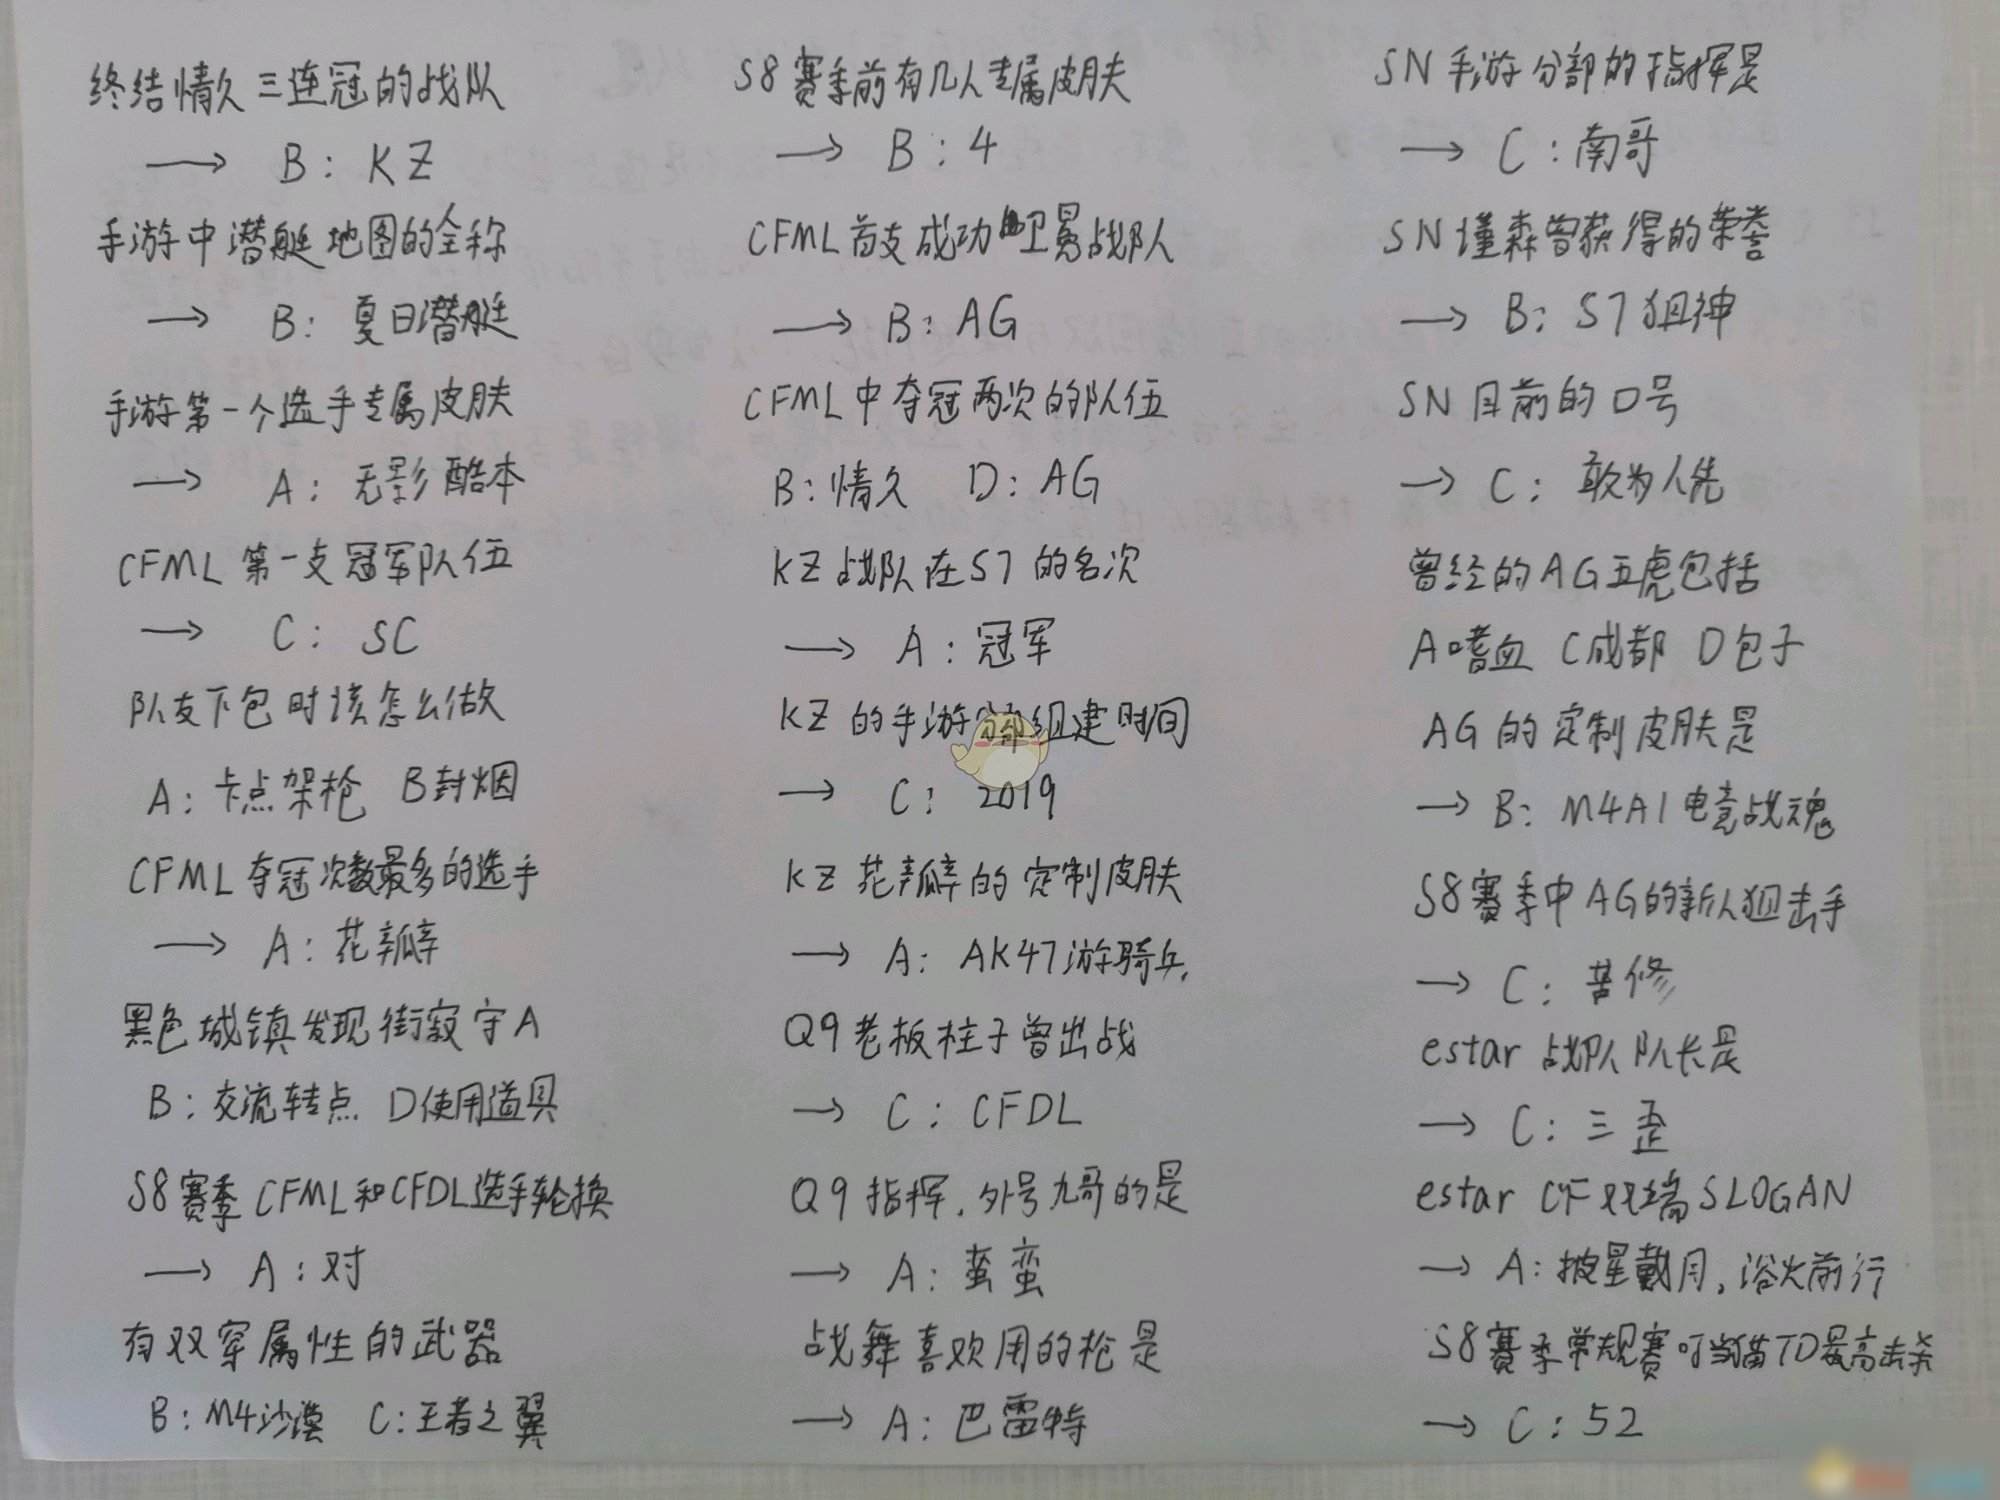 终结情久三连冠的战队
→ B: KZ
手游中潜艇地图的全称
→ B: 夏日潜艇
手游第一个选手专属皮肤
→ A: 无影酷本
CFML 第一支冠军队伍
→ C: SC
队友下包时该怎么做
A: 卡点架枪 B封烟
CFML夺冠次数最多的选手
→ A: 花瓣
黑色城镇发现街寂守A
B: 交流转点 D使用道具
S8赛季CFML和CFDL选手轮换
→ A: 对
有双穿属性的武器
B: M4沙漠 C: 王者之翼
S8赛季前有几人专属皮肤
→ B: 4
CFML首支成功卫冕战队
→ B: AG
CFML中夺冠两次的队伍
B: 情久 D: AG
KZ战队在S7的名次
→ A: 冠军
KZ的手游分部组建时间
→ C: 2019
KZ花瓣的定制皮肤
→ A: AK47游骑兵.
Q9老板柱子曾出战
→ C: CFDL
Q9指挥.外号九哥的是
→ A: 茧蛮
战舞喜欢用的枪是
→ A: 巴雷特
SN手游分部的指挥是
→ C: 南哥
SN谨森曾获得的荣誉
→ B: S7狙神
SN目前的口号
→ C: 敢为人先
曾经的AG五虎包括
A嗜血 C成都 D包子
AG的定制皮肤是
→ B: M4A1电竞战魂
S8赛季中AG的新人狙击手
→ C: 苦修
estar战队队长是
→ C: 三歪
estar CF双端SLOGAN
→ A: 披星戴月,浴火前行
S8赛季常规赛叮当猫TD最高击杀
→ C: 52